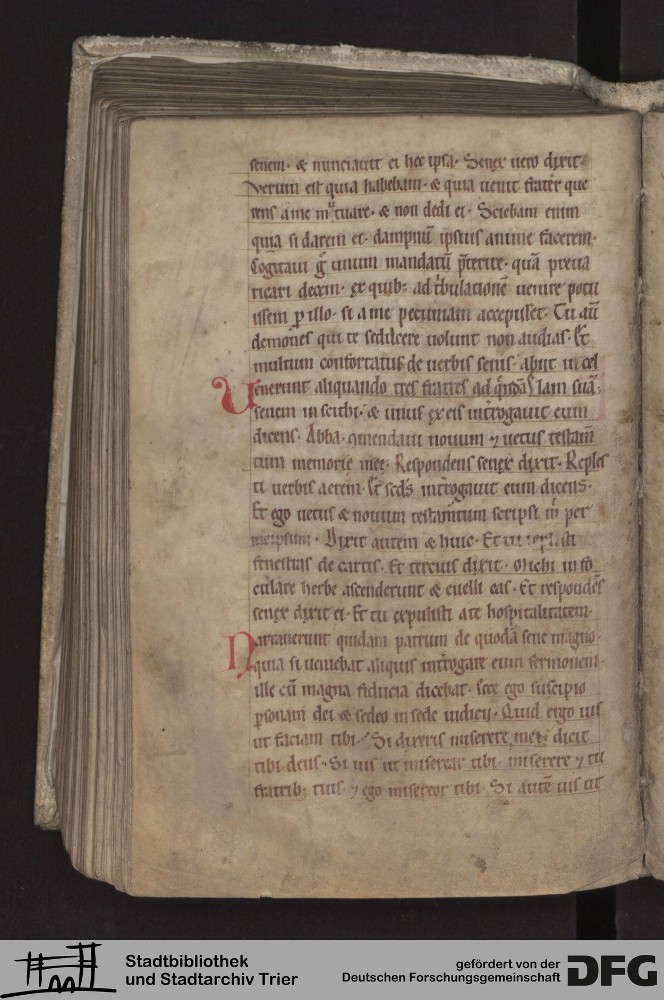 senem. & nunciauit ei hec ipsa. Senex uero dixit.
Verum est quia habebam. & quia uenit frater que
rens a me mutuare. & non dedi ei. Sciebam enim
quia si darem ei. dampnū ipsius anime facerem.
Cogitaui g̃ unum mandatū p̃terire. quā preua
ricari decem. ex quib; ad tribulationē uenire potu
issem ꝑ illo. si a me pecuniam accepisset. Tu aū
demones qui te seducere uolunt non audias. Et
multum confortatus de uerbis senis. abiit in cel
Venerunt aliquando tres fratres ad quēdā lam suā.
senem in scithi. & unus ex eis introgauit eum
dicens. Abba. ꝯmendaui nouum ⁊ uetus testam̄
tum memorie mee. Respondens senex dixit. Reples
ti uerbis aerem. Et scds introgauit eum dicens.
Et ego uetus & nouum testamtum scripsi m̄ per
meipsum. Dixit autem & huic. Et tu replesti
fenestras de cartis. Et tercius dixit. Michi in fo
culare herbe ascenderunt & euelli eas. Et respondēs
senex dixit ei. Et tu expulisti a te hospitalitatem.
Narrauerunt quidam patrum de quodā sene magno.
quia si ueniebat aliquis introgare eum sermonem.
ille cū magna fiducia dicebat. Ecce ego suscipio
ꝑsonam dei & sedeo in sede iudicii. Quid ergo uis
ut faciam tibi. Si dixeris miserere mei. dicit
tibi deus. Si uis ut miserear tibi. miserere ⁊ tu
fratrib; tuis. ⁊ ego misereor tibi. Si autē uis ut
Stadtbibliothek
und Stadtarchiv Trier
gefördert von der
Deutschen Forschungsgemeinschaft
DFG